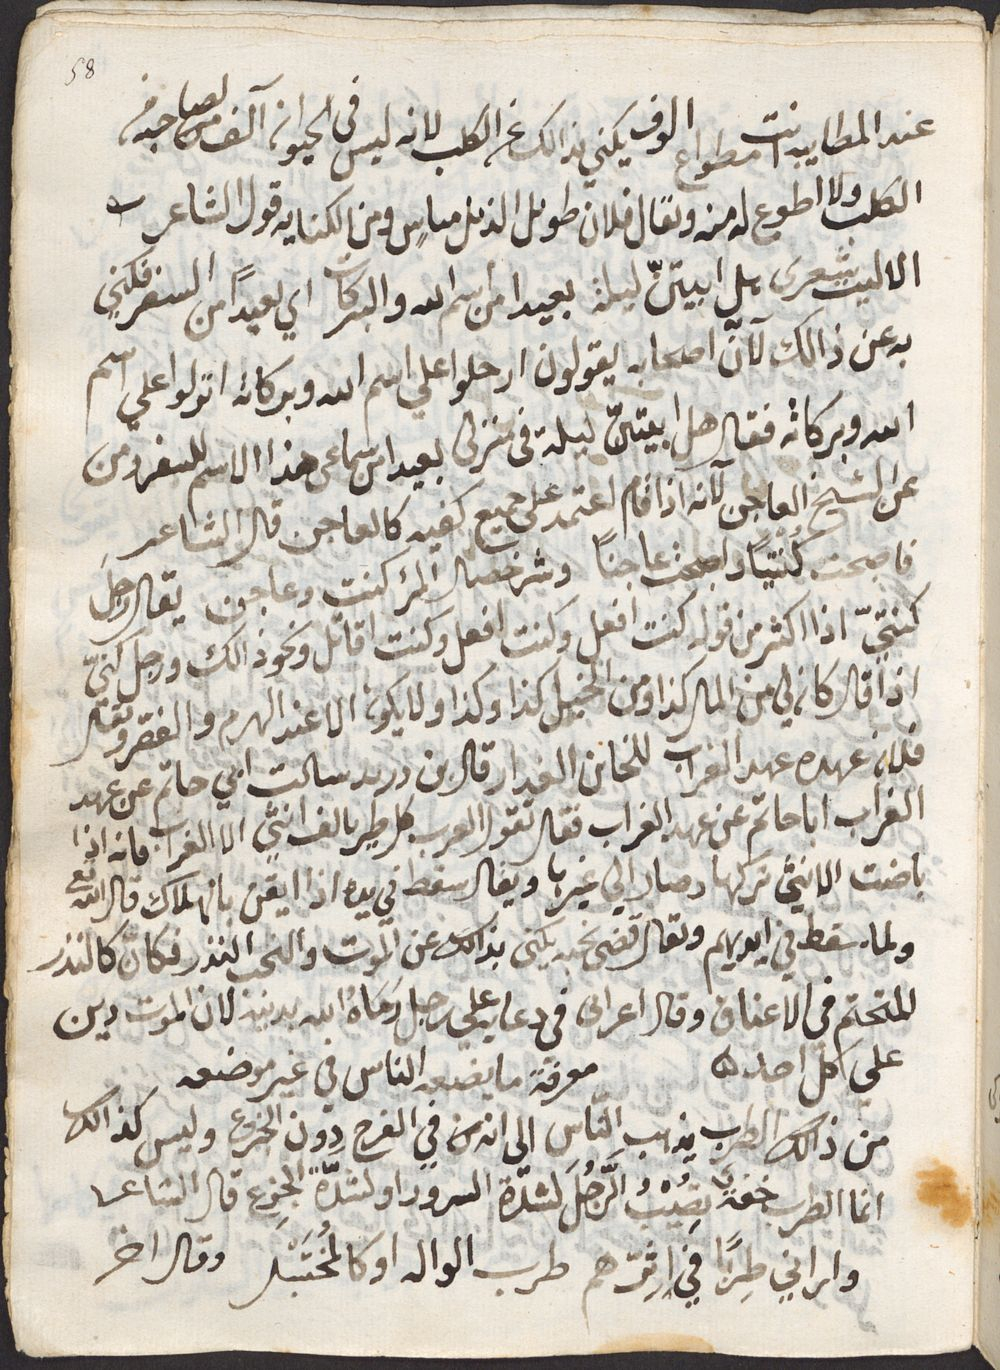 58
عند المطايب انت مطواع الوف يكنى بذالك عن الكلب لانه ليس في الحيوان آلف من لصاحبه من
الكلب ولا اطوع له منه ويقال فلان طويل الذيل مياس ومن الكنايه قول الشاعر
الا ليت شعرى هل ابيتنّ ليلة بعيدا من اسم الله والبركات اي بعيداً من السفر فكني
به عن ذالك لآنّ اصحابه يقولون ارحلوا على اسم الله وبركاته انزلوا على اسم
الله وبركاته فقال هل ابيتنّ ليلة في منزلى بعيدا من سماعى هذا الاسم للسفر ومن
عن الشيخ العاجن لآنه اذا قام اعتمد على جميع كفيه كالعاجن قال الشاعر
فاصبحت كُنْتيّاً واصبحت عاجناً وشر خصال المرؤ كنت وعاجن يقال رجل
كنتيّ اذا اكثر من قوله كنت افعل وكنت افعل وكنت اقاتل ونحو ذالك ورجل كانيّ
اذا قال كان لي من المال كذا ومن الخيل كذا وكذا ولا يكون الا عند الهرم والفقر ويقال
فلان عهده عهد الغراب للخاين الغدار قال بن دريد سالت ابي حاتم عن عهد
الغراب ابا حاتم عن عهد الغراب فقال تقول العرب كل طير يالف انثىّ الا الغراب فانه اذا
باضت الانثىّ تركها وصار الي غيرها ويقال سقط في يده اذا ايقن بالهلاك قال الله تع
ولما سقط في ايديهم ويقال قضى نحبه يكنى بذالك عن الموت والنحب النذر فكان كالنذر
للمتحتم في الاعناق وقال اعرابى في دعايه على رجل رَمَاهُ الله بدينه لان الموت دين
علي كل احد ه معرفة ما يضعه الناس في غير موضعه
من ذالك الطرب يذهب النّاس الى انه من في الفرح دون الجزع وليس كذالك
انما الطرب خفةٌ تصيْبُ الرّجُلَ لشدّة السرور او لشدّة الجزع قال الشاعر
وارانى طرِبًا في اِثرهم طرب الواله او كالمُختَبَلِ وقال اخر